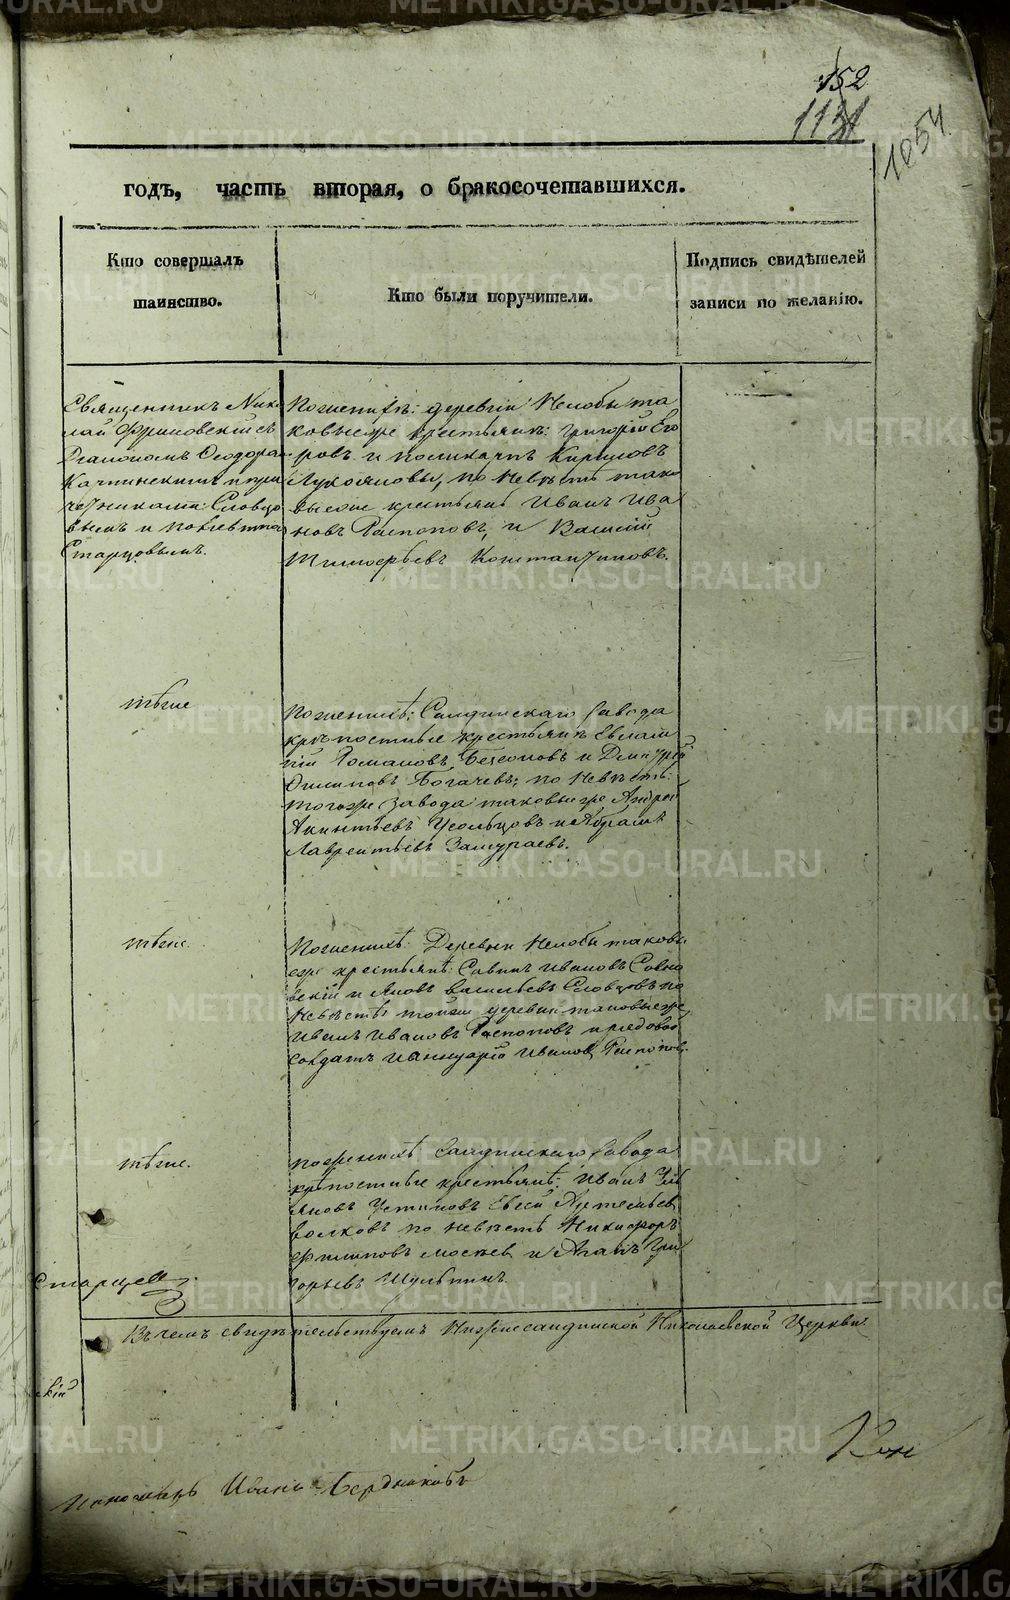 152
1131
1054
годъ, часть вторая, о бракосочетавшихся.
Кто совершалъ
таинство.
Кто были поручители.
Подпись свидѣтелей
записи по желанію.
Священникъ Нико-
лай съ
Діакономъ Ѳеодоромъ
Качпинскимъ и при
четниками: Словцо
вымъ и
Старцовымъ.
По женихѣ: деревни Нелобы та
ковыеже крестьяне: Григорій Его
ровъ и Поликарпъ Кириловъ
Лукояновы, по невѣстѣ тако
выеже крестьяне Иванъ Ива
новъ Распоповъ, и Василій
Тимофеевъ Константиновъ.
тѣже
По женихѣ: Салдинскаго завода
крѣпостные крестьяне Евлам
пій Романовъ и Дмитрій
Филиповъ Богачевъ; по невѣстѣ:
тогоже завода таковыеже Андрей
Акинтьевъ Усольцовъ и Абрамъ
Лаврентьевъ Замураевъ.
тѣже.
По женихѣ: Деревни Нелобы таковы
еже крестьяне: Савинъ Ивановъ
и Яковъ Васильевъ Словцовъ по
невѣстѣ тойже деревни таковыеже
Иванъ Ивановъ Распоповъ и рядовой
солдатъ Іаннуарій Ивановъ Распоповъ.
тѣже.
По женихѣ Салдинскаго завода
крѣпостные крестьяне: Иванъ Улі
яновъ Устиновъ Евсей
Волковъ по невѣстѣ Никифоръ
Филиповъ и Агапъ Гри
горьевъ Шульпинъ.
Старцевъ
Въ чемъ свидѣтельствуемъ Нижнесалдинской Николаевской Церкви
скій
Пономарь Иванъ Бердниковъ
METRIKI.GASO-URAL.RU